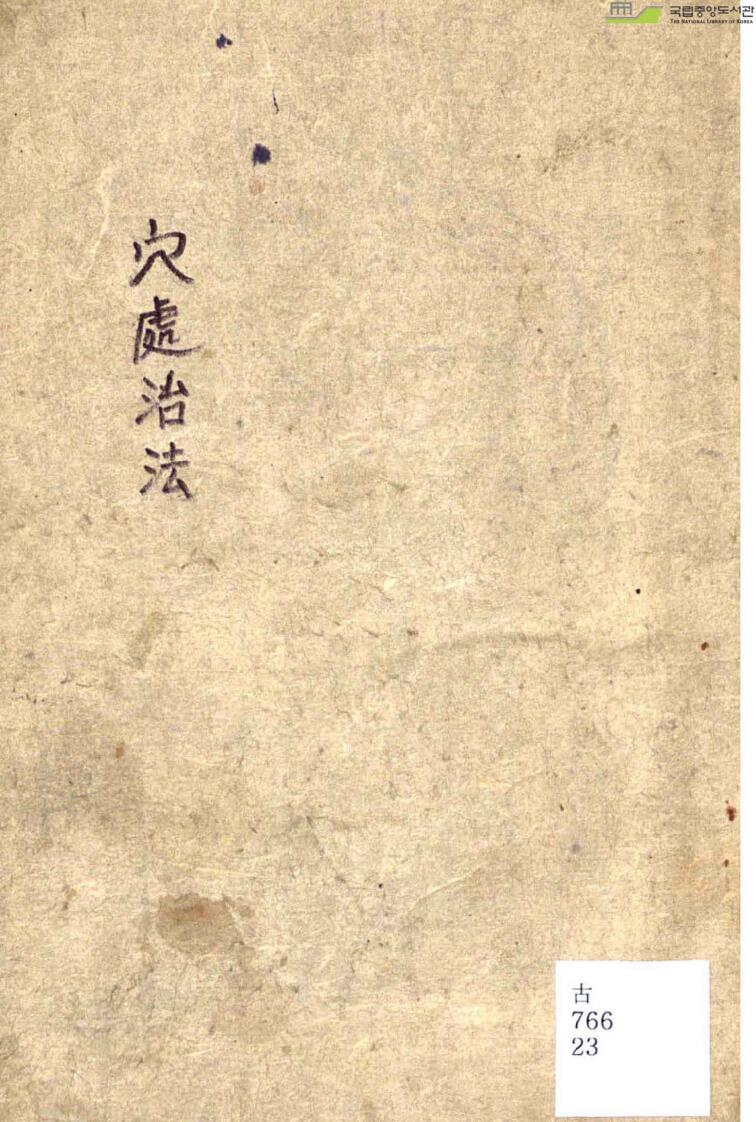 국립중앙도서관
THE NATIONAL LIBRARY OF KOREA
穴處治法
古
766
23